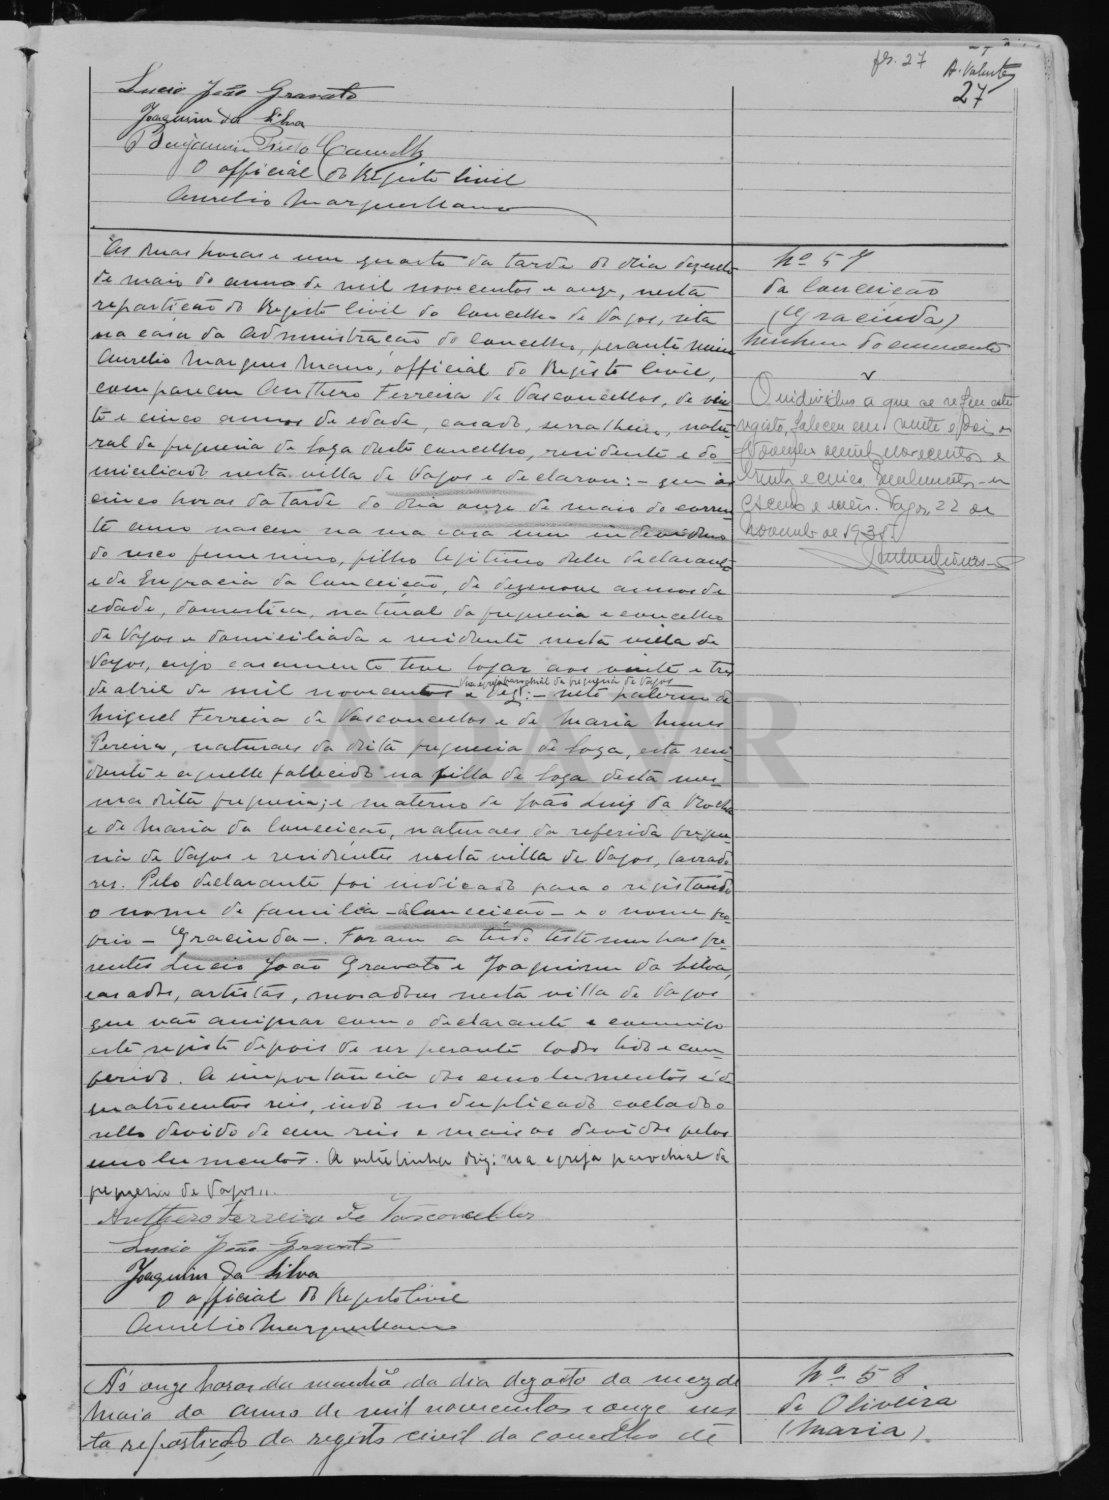 fls. 27
A. Valente
27
Lucio João Gravato
Joaquim da Silva
Benjamin
O official do Registo Civil
Aurelio Marques Mano
Nº 57
da Conceição
(Gracinda)
Nenhum documento
O individuo a que se refere este
registo, faleceu em vinte e dois de
Novembro de mil novecentos e
trinta e cinco,
Vagos, 22 de
Novembro de 1935
As duas horas e um quarto da tarde do dia dezoito
de maio do anno de mil novecentos e onze, nesta
repartição do Registo Civil do Concelho de Vagos, sita
na casa da Administração do Concelho, perante mim
Aurelio Marques Mano, official do Registo Civil,
compareceu Anthero Ferreira de Vasconcellos, de vin-
te e cinco annos de edade, casado, serralheiro, natu-
ral da freguesia de Soza deste concelho, residente e do-
miciliado nesta villa de Vagos e declarou: – que ás
cinco horas da tarde do dia onze de maio do corren-
te anno nasceu na sua casa um individuo
do sexo femenino, filho legitimo delle declarante
e de Engracia da Conceição, de dezenove annos de
edade, domestica, natural da freguesia e concelho
de Vagos e domiciliada e residente nesta villa de
Vagos, cujo casamento teve logar aos vinte e tres
na egreja parochial da freguesia de Vagos
de abril de mil novecentos e dez: – neto paterno de
Miguel Ferreira de Vasconcellos e de Maria Nunes
Pereira, naturaes da dita freguesia de Soza, esta resi-
dente e aquelle fallecido na villa de Soza desta mes-
ma dita freguesia; e materno de João Luiz da Rocha
e de Maria da Conceição, naturaes da referida fregue-
sia de Vagos e residentes nesta villa de Vagos, lavrado-
res. Pelo declarante foi indicado para o registando
o nome de familia – da Conceição – e o nome pro-
prio – Gracinda –. Foram a tudo testemunhas pre-
sentes Lucio João Gravato e Joaquim da Silva,
casados, artistas, moradores nesta villa de Vagos
que vão assignar com o declarante e commigo
este registo depois de ser perante todos lido e con-
ferido. A importancia dos emolumentos é de
quatrocentos reis, indo no duplicado collado o
sello devido de cem reis e mais os devidos pelos
emolumentos. A entrelinha diz: "na egreja parochial da
freguesia de Vagos".
Anthero Ferreira de Vasconcellos
Lucio João Gravato
Joaquim da Silva
O official do Registo Civil
Aurelio Marques Mano
ADAVR
Nº 58
de Oliveira
(Maria)
Ás onze horas da manhã do dia dezoito do mez de
Maio do anno de mil novecentos e onze nes-
ta repartição do registo civil do concelho de